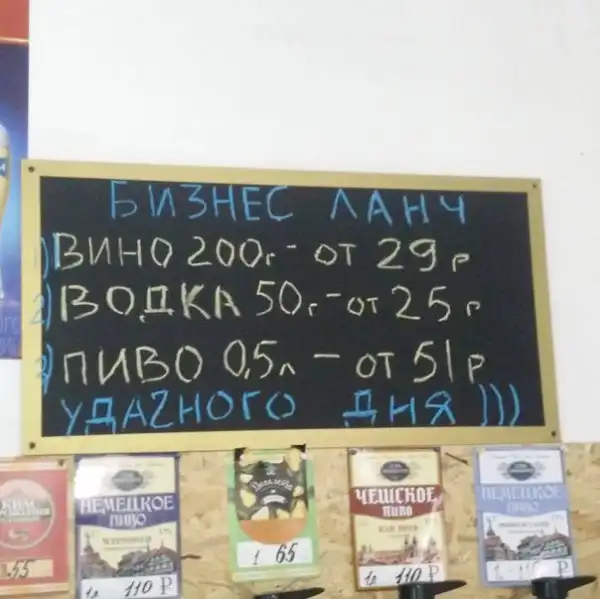 БИЗНЕС ЛАНЧ
1) ВИНО 200г - ОТ 29 р
2) ВОДКА 50г - ОТ 25 р
3) ПИВО 0,5л - ОТ 51 р
УДАЧНОГО ДНЯ )))
55
НЕМЕЦКОЕ
ПИВО
1л 110 Р
1 65
ЧЕШСКОЕ
ПИВО
1л 110 Р
НЕМЕЦКОЕ
ПИВО